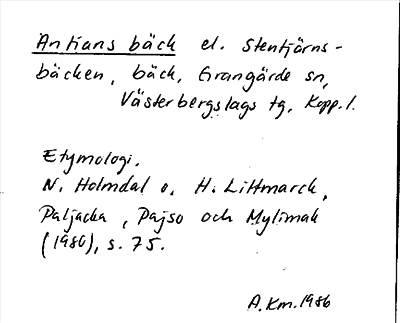 Antians bäck el. Stentjärns-
bäcken, bäck, Grangärde sn,
Västerbergslags tg, Kopp. l.
Etymologi.
N. Holmdal o. H. Littmarck,
Paljacka, Pajso och Mylimak
(1980), s. 75.
A.Km.1986